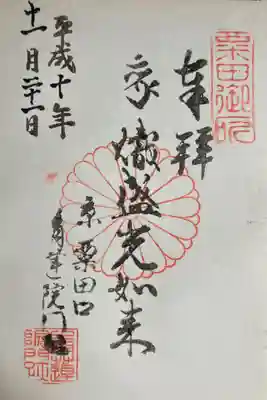 粟田御所
奉拝
熾盛光如来
京粟田口
青蓮院門跡
平成十年
十一月二十一日